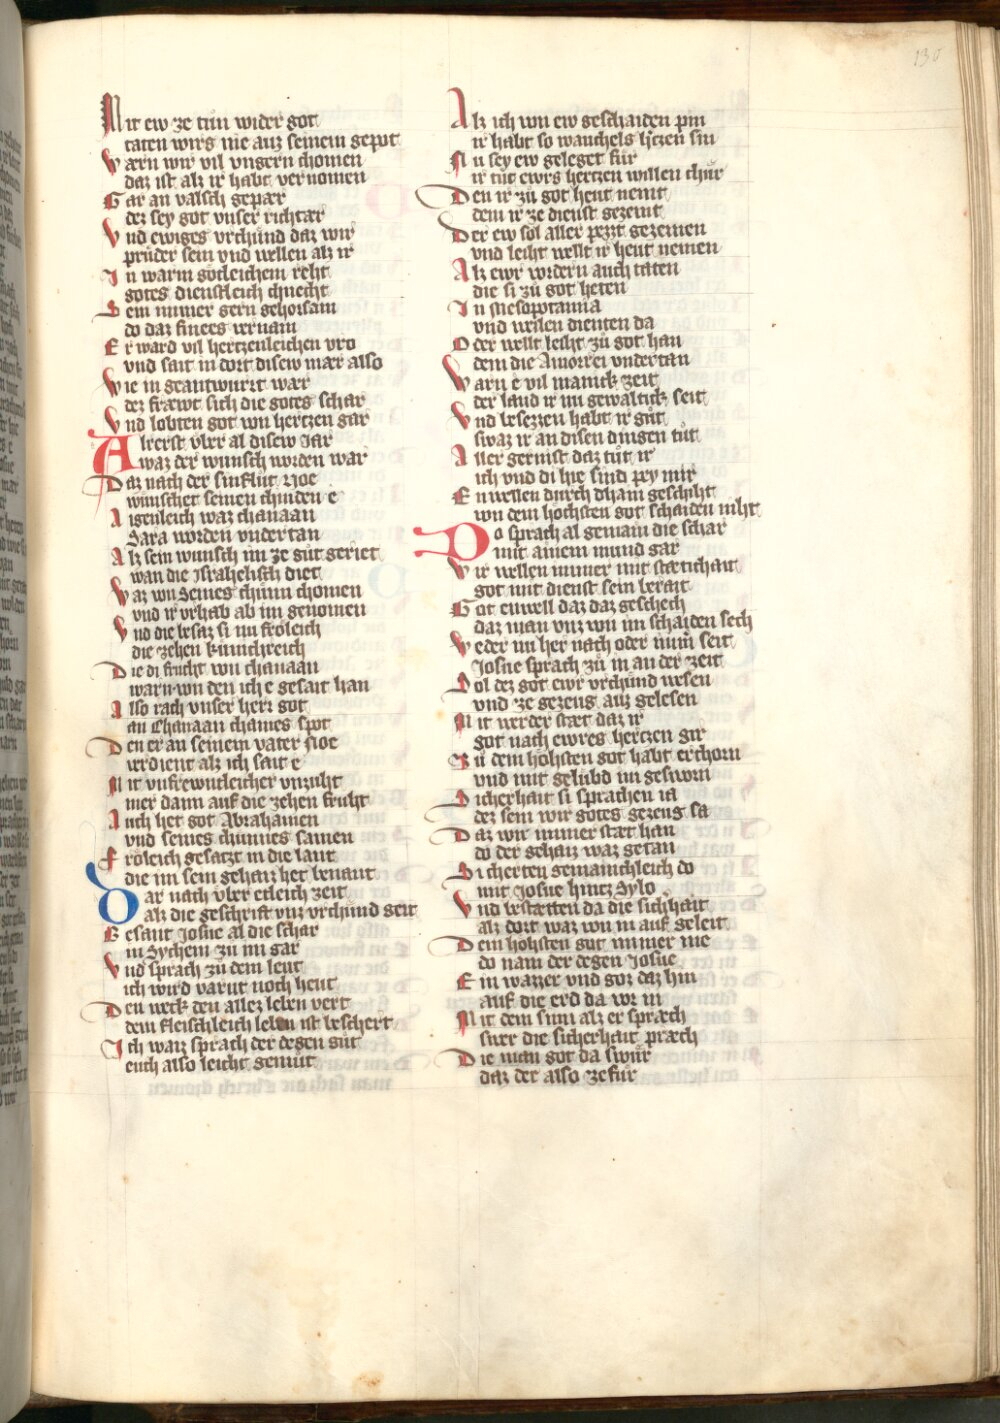 130
Mit ew ze tůn wider got
taten wirs nie auz seinem gepot
Wærn wir vil vngern chomen
daz ist alz ir habt vernomen
Gar an valsch gepær
dez sey got vnser richtær
Vnd ewiges vrchünd daz wir
prüder sein vnd wellen alz ir
In warm götleichem reht
gotes dienstleich chnecht
Sein immer gern gehorsam
do daz finees vernam
Er ward vil hertzenleichen vro
vnd sait in dort disew mær also
Wie in geantwurtt wær
dez fræwt sich die gotes schar
Vnd lobten got von hertzen gar
Alrerst vber al disew Jar
waz der wunsch worden war
Daz nach der sinflůt Noe
wünschet seinen chinden e
Aigenleich waz chanaan
Sara worden vndertan
Alz sein wunsch im ze gůt geriet
wan die Israhelisch diet
Waz von Semes chünn chomen
vnd ir vrhab ab im genomen
Vnd die besaz si nu fröleich
die zehen künichreich
Die di frücht von chanaan
warn von den ich e gesait han
Also rach vnser herr got
an Chanaan chames spot
Den er an seinem vater Noe
verdient alz ich sait e
Mit vnfrewntleicher vnzuht
mer dann auf die zehen fruht
Auch het got Abrahamen
vnd semes chünnes samen
Fröleich gesatzt in die lant
die im sein gehaiz het benant
Dar nach vber etleich zeit
alz die geschrift vnz vrchünd geit
Besant Josue al die schar
in Sychem zů im gar
Vnd sprach zů dem leut
ich wird varnt noch heut
Den weck den allez leben vert
dem fleischleich leben ist beschert
Ich waiz sprach der degen gůt
euch also leicht gemůt
Alz ich von ew geschaiden pin
ir habt so wanchels hertzen sin
Nu sey ew geleget für
ir tůt ewrs hertzen willen chür
Den ir zů got heut nemt
dem ir ze dienst gezemt
Der ew sol aller pezzt gezemen
vnd leiht wellt ir heut nemen
Alz ewr vordern auch taten
die si zů got heten
In Mesopotamia
vnd weilen dienten da
Oder wellt leiht zů got han
dem die Amorrei vndertan
Warn e vil manick zeit
der land ir nu gewaltick seit
Vnd besezzen habt ir gůt
swaz ir an disen dingen tůt
Aller gernist daz tůt ir
ich vnd di hie sind pey mir
En wellen durch dhain geschiht
von dem höchsten got schaiden niht
Do sprach al gemain die schar
mit ainem mund gar
Wir wellen immer mit stætichait
got mit dienst sein berait
Got enwell daz daz geschech
daz man vnz von im schaiden sech
Weder nu her nach oder nům seit
Josue sprach zů in an der zeit
Sol dez got ewr vrchünd wesen
vnd ze gezeug auz gelesen
Mit werder stæt daz ir
got nach ewres hertzen gir
Zu dem höhsten got habt erchorn
vnd mit gelübd im gesworn
Sicherhait si sprachen ia
dez sein wir gotes gezeug sa
Daz wir immer stæt han
do der gehaiz waz getan
Sicherten gemainchleich do
mit Josue hintz Sylo
Vnd bestætten da die sichhait
alz dort waz von in auf geleit
Dem höhsten got immer me
do nam der degen Josue
Ein wazzer vnd goz daz hin
auf die erd da vor in
Mit dem sinn alz er spræch
swer die sicherhait præch
Die man got da swůr
daz der also zefůr